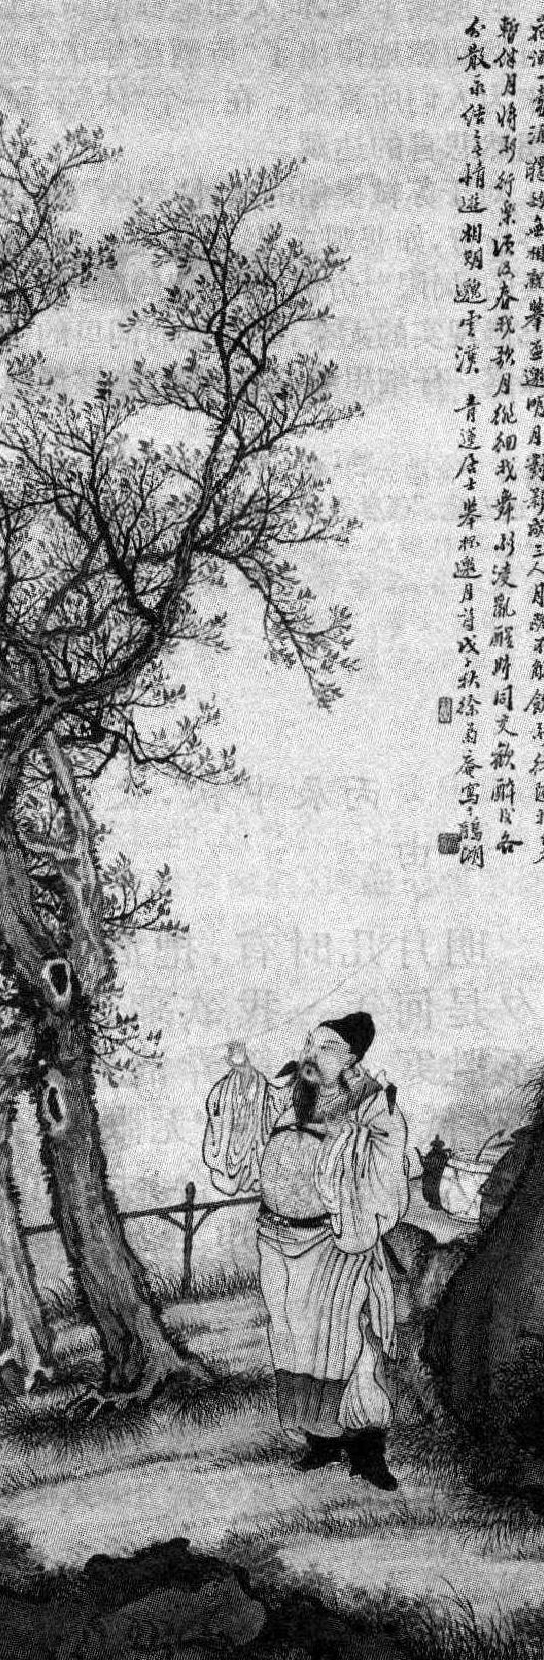 花間一壺酒獨酌無相親舉盃邀明月對影成三人月既不解飲影徒隨我身
暫伴月將影行樂須及春我歌月徘徊我舞影凌亂醒時同交歡醉後各
分散永結無情遊相期邈雲漢 青蓮居士舉杯邀月詩戊子秋徐菊庵寫于鵝湖